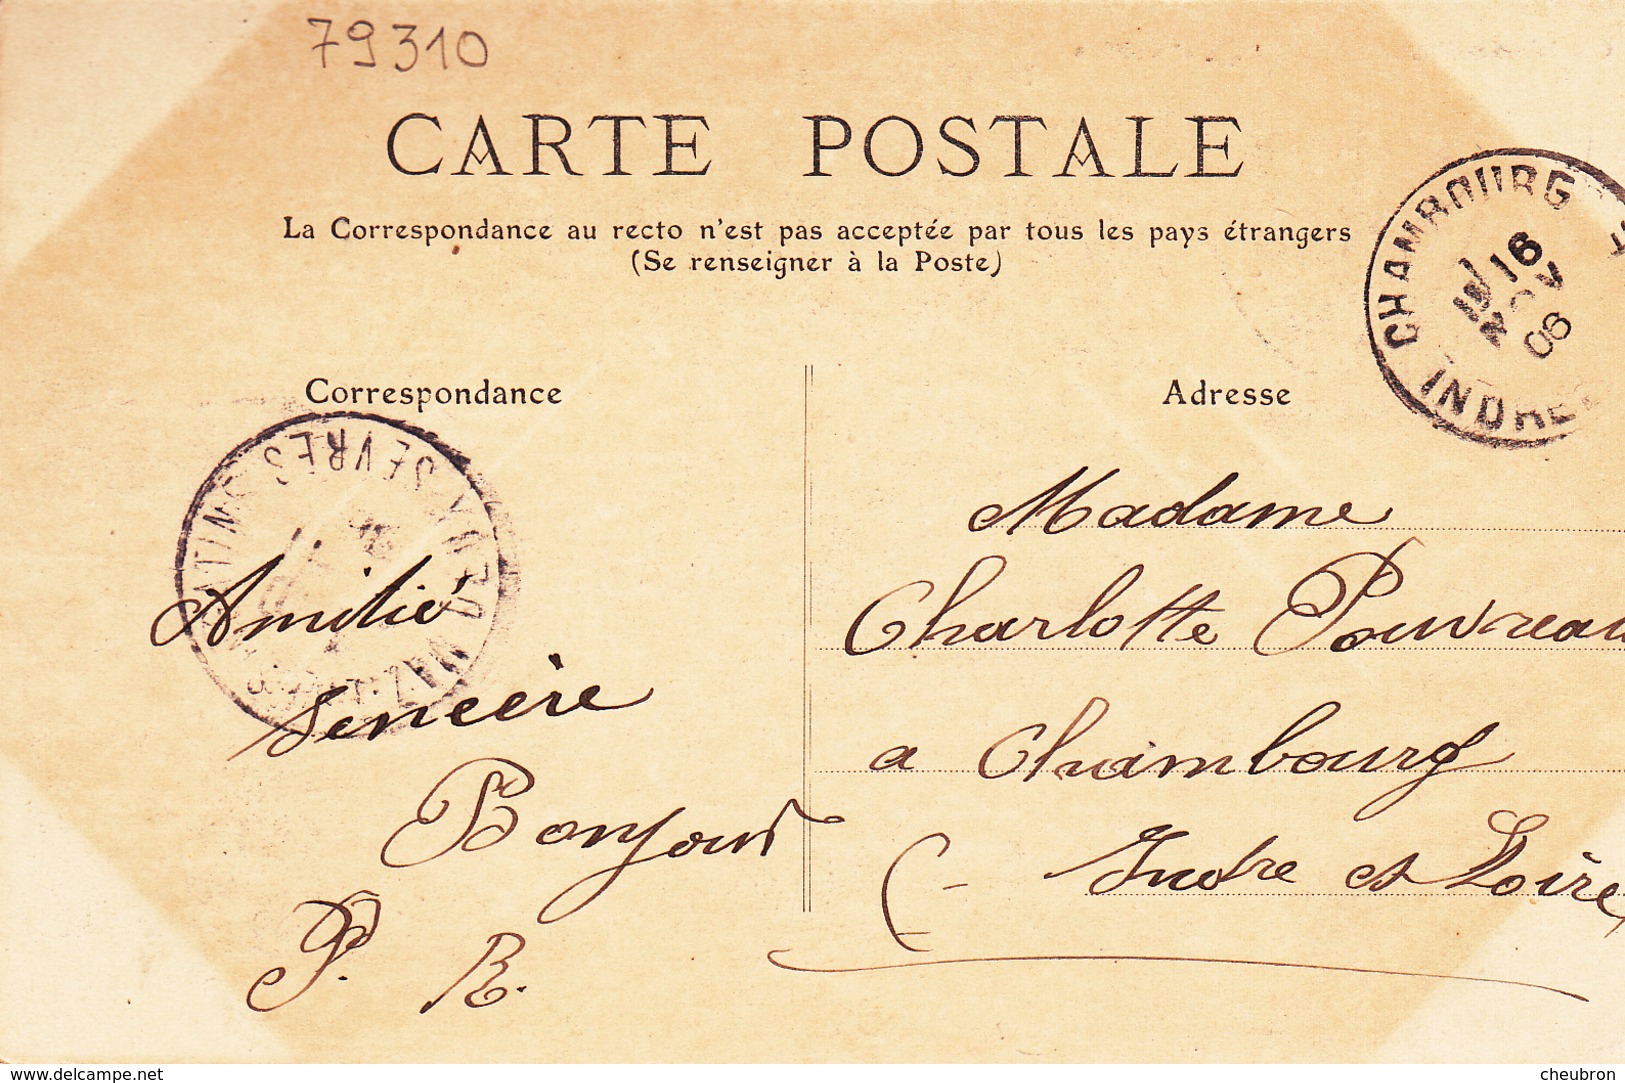 79310
CARTE POSTALE
La Correspondance au recto n'est pas acceptée par tous les pays étrangers
(Se renseigner à la Poste)
CHAMBOURG
16
06
INDRE
Correspondance
Adresse
SEVRES
Amitié
sencère
Bonjour
P. R.
Madame
Charlotte Pouvreau
a Chambourg
Indre et Loire
www.delcampe.net
cheubron